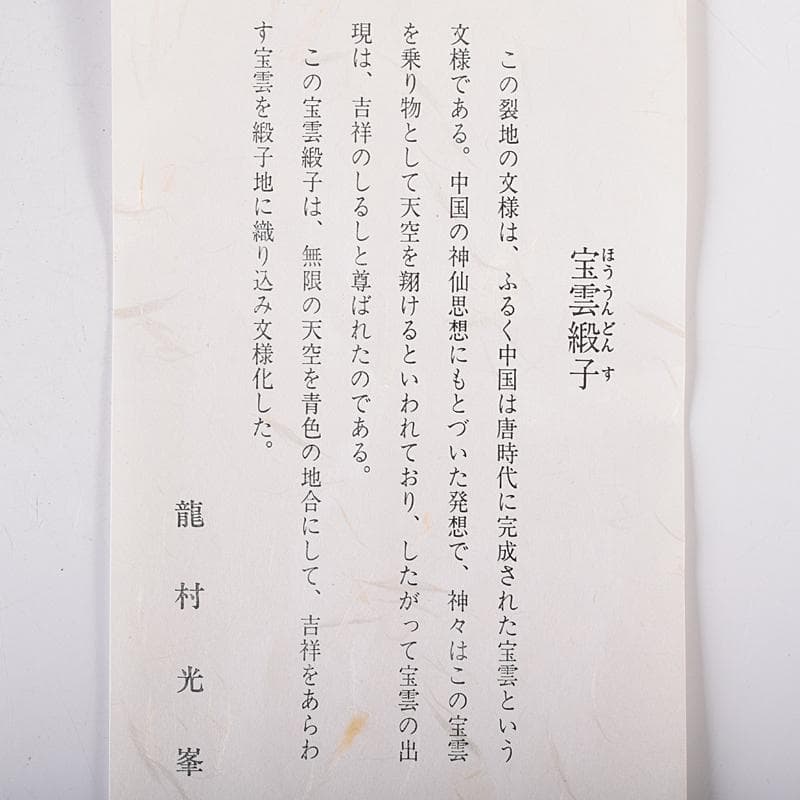 ほううんどんす
宝雲緞子
この裂地の文様は、ふるく中国は唐時代に完成された宝雲という
文様である。中国の神仙思想にもとづいた発想で、神々はこの宝雲
を乗り物として天空を翔けるといわれており、したがって宝雲の出
現は、吉祥のしるしと尊ばれたのである。
この宝雲緞子は、無限の天空を青色の地合にして、吉祥をあらわ
す宝雲を緞子地に織り込み文様化した。
龍村光峯